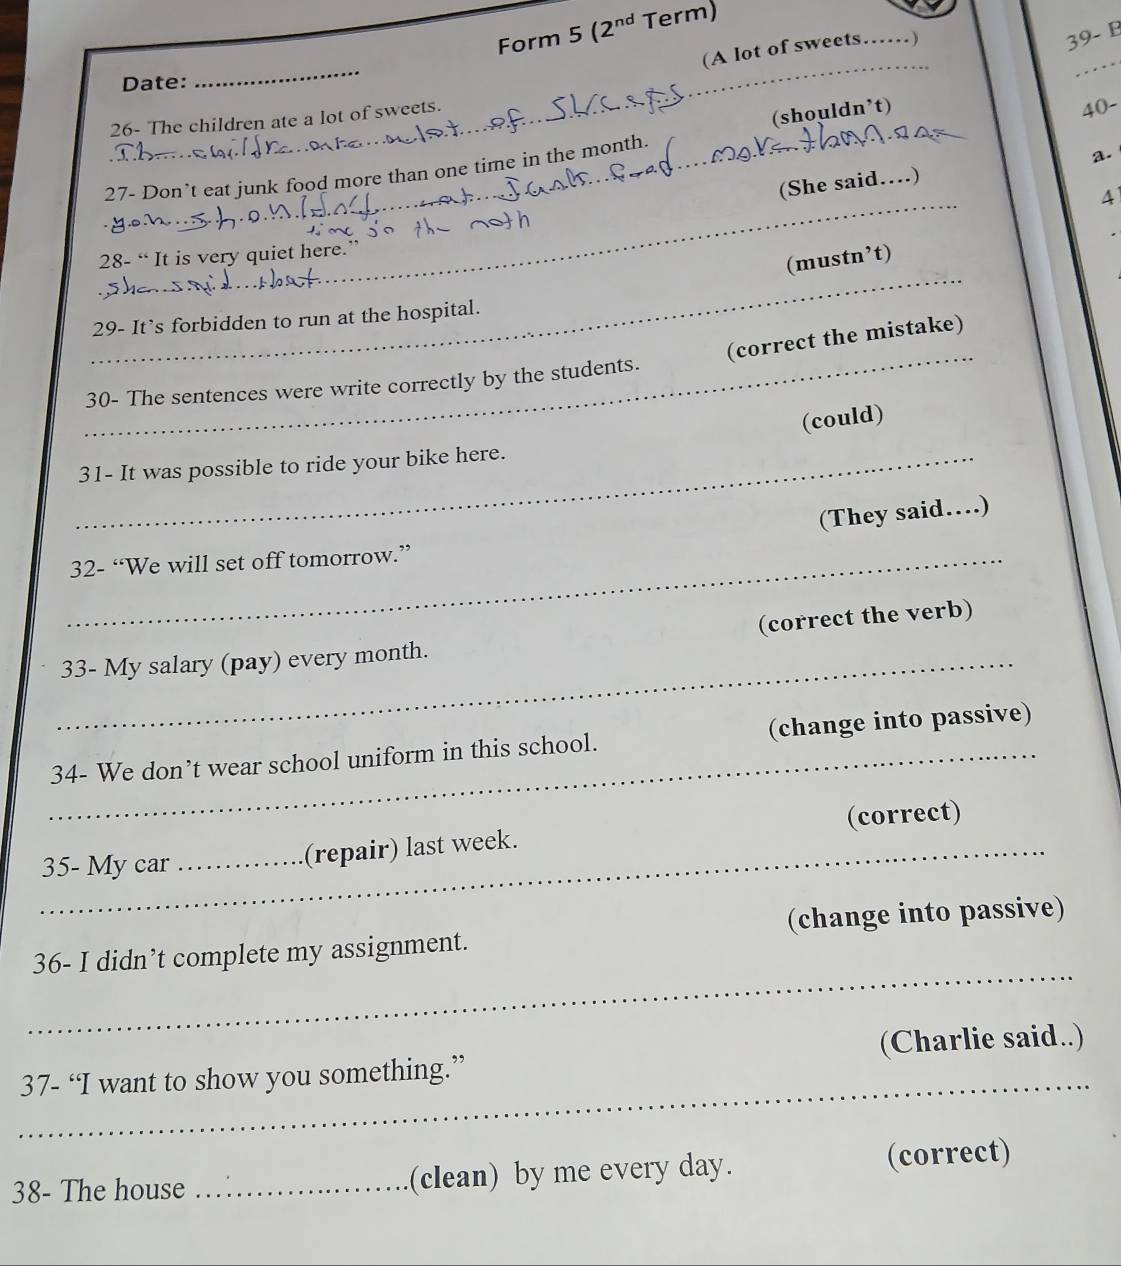 Form 5 (2nd Term)
Date: ........................
39-
26- The children ate a lot of sweets. (A lot of sweets......)
of
40-
27- Don't eat junk food more than one time in the month. (shouldn't)
a.
food more than
in the
28- “ It is very quiet here.” (She said....)
4
She said that
29- It's forbidden to run at the hospital. (mustn't)
30- The sentences were write correctly by the students. (correct the mistake)
31- It was possible to ride your bike here. (could)
32- “We will set off tomorrow.” (They said....)
33- My salary (pay) every month. (correct the verb)
34- We don't wear school uniform in this school. (change into passive)
35- My car ..............(repair) last week. (correct)
36- I didn't complete my assignment. (change into passive)
37- “I want to show you something.” (Charlie said..)
38- The house ......................(clean) by me every day. (correct)